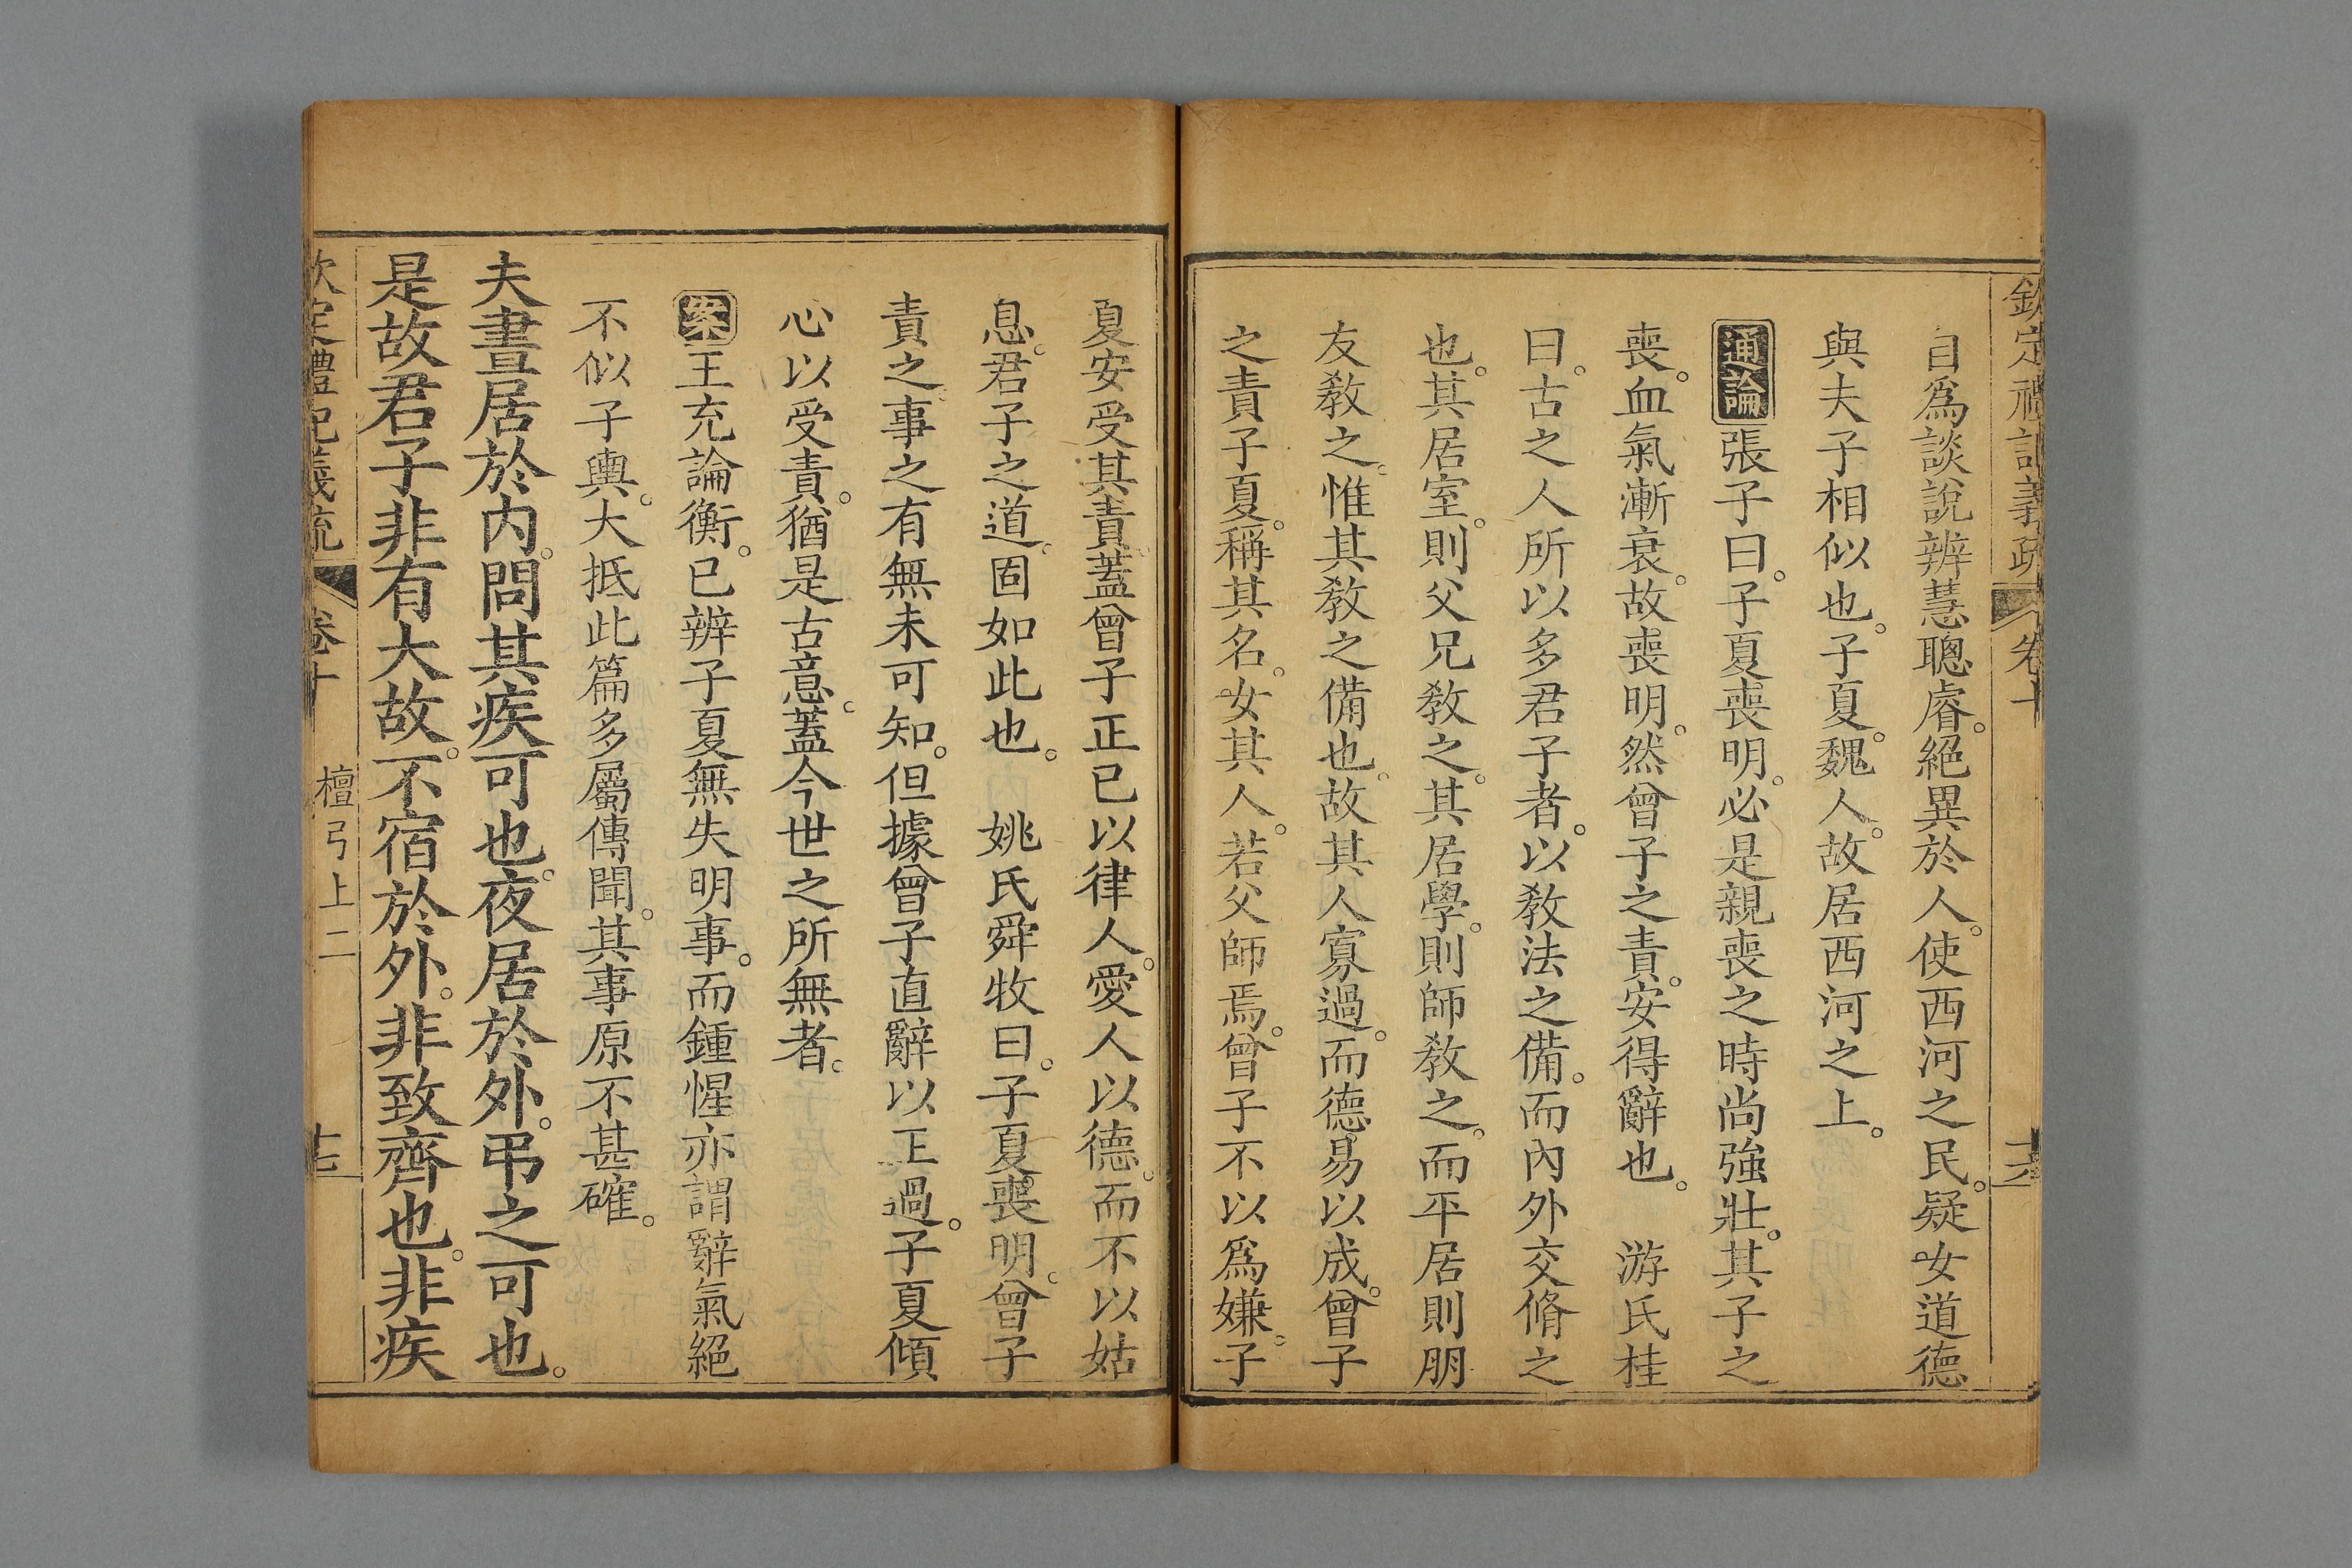 欽定禮記義疏 卷十 十六
自爲談說辨慧聰睿。絕異於人。使西河之民。疑女道德
與夫子相似也。子夏。魏人。故居西河之上。
通論張子曰。子夏喪明。必是親喪之時尚強壯。其子之
喪。血氣漸衰。故喪明。然曾子之責。安得辭也。 游氏桂
曰。古之人所以多君子者。以敎法之備。而內外交脩之
也。其居室。則父兄敎之。其居學。則師敎之。而平居則朋
友敎之。惟其敎之備也。故其人寡過。而德易以成。曾子
之責子夏。稱其名。女其人。若父師焉。曾子不以爲嫌。子
夏安受其責。蓋曾子正已以律人。愛人以德。而不以姑
息。君子之道。固如此也。 姚氏舜牧曰。子夏喪明。曾子
責之。事之有無未可知。但據曾子直辭以正過。子夏傾
心以受責。猶是古意。蓋今世之所無者。
案王充論衡。已辨子夏無失明事。而鍾惺亦謂辭氣絕
不似子輿。大抵此篇多屬傳聞。其事原不甚確。
夫晝居於内。問其疾可也。夜居於外。弔之可也。
是故君子非有大故。不宿於外。非致齊也。非疾
欽定禮記義疏 卷十 檀弓上二 十七